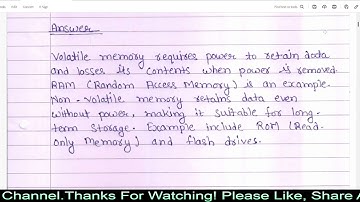 Answer
Volatile memory requires power to retain data
and losses its contents when power is removed
RAM (Random Access Memory) is an example.
Non-volatile memory retains data even
without power, making it suitable for long-
term storage. Example include ROM (Read-
Only Memory) and flash drives.
Channel.Thanks For Watching! Please Like, Share A